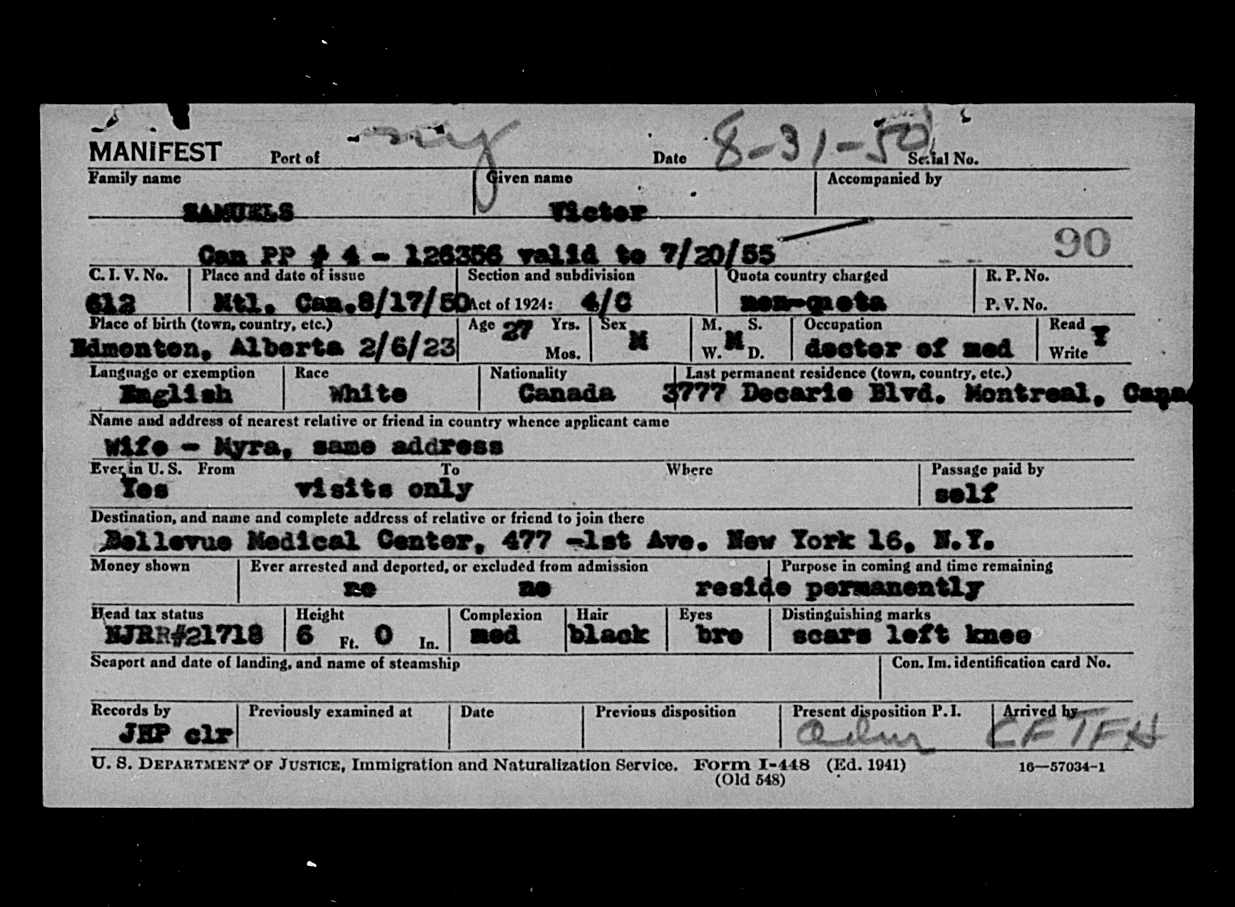 MANIFEST Port of ny Date 8-31-50 Serial No.
Family name Given name Accompanied by
SAMUELS Victor
Can PP # 4 - 126356 valid to 7/20/55 90
C. I. V. No. Place and date of issue Section and subdivision Quota country charged R. P. No.
612 Mtl. Can.8/17/50 Act of 1924: 4/C non-quota P. V. No.
Place of birth (town, country, etc.) Age 27 Yrs. Sex M. S. Occupation Read
Edmonton, Alberta 2/6/23 Mos. M W. M D. doctor of med Write Y
Language or exemption Race Nationality Last permanent residence (town, country, etc.)
English White Canada 3777 Decarie Blvd. Montreal, Cana
Name and address of nearest relative or friend in country whence applicant came
Wife - Myra, same address
Ever in U. S. From To Where Passage paid by
Yes visits only self
Destination, and name and complete address of relative or friend to join there
Bellevue Medical Center, 477 -1st Ave. New York 16, N.Y.
Money shown Ever arrested and deported, or excluded from admission Purpose in coming and time remaining
no no reside permanently
Head tax status Height Complexion Hair Eyes Distinguishing marks
NJRR#21718 6 Ft. 0 In. med black bro scars left knee
Seaport and date of landing, and name of steamship Con. Im. identification card No.
Records by Previously examined at Date Previous disposition Present disposition P. I. Arrived by
JHP clr adm
U. S. DEPARTMENT OF JUSTICE, Immigration and Naturalization Service. Form I-448 (Ed. 1941) 16—57034-1
(Old 548)